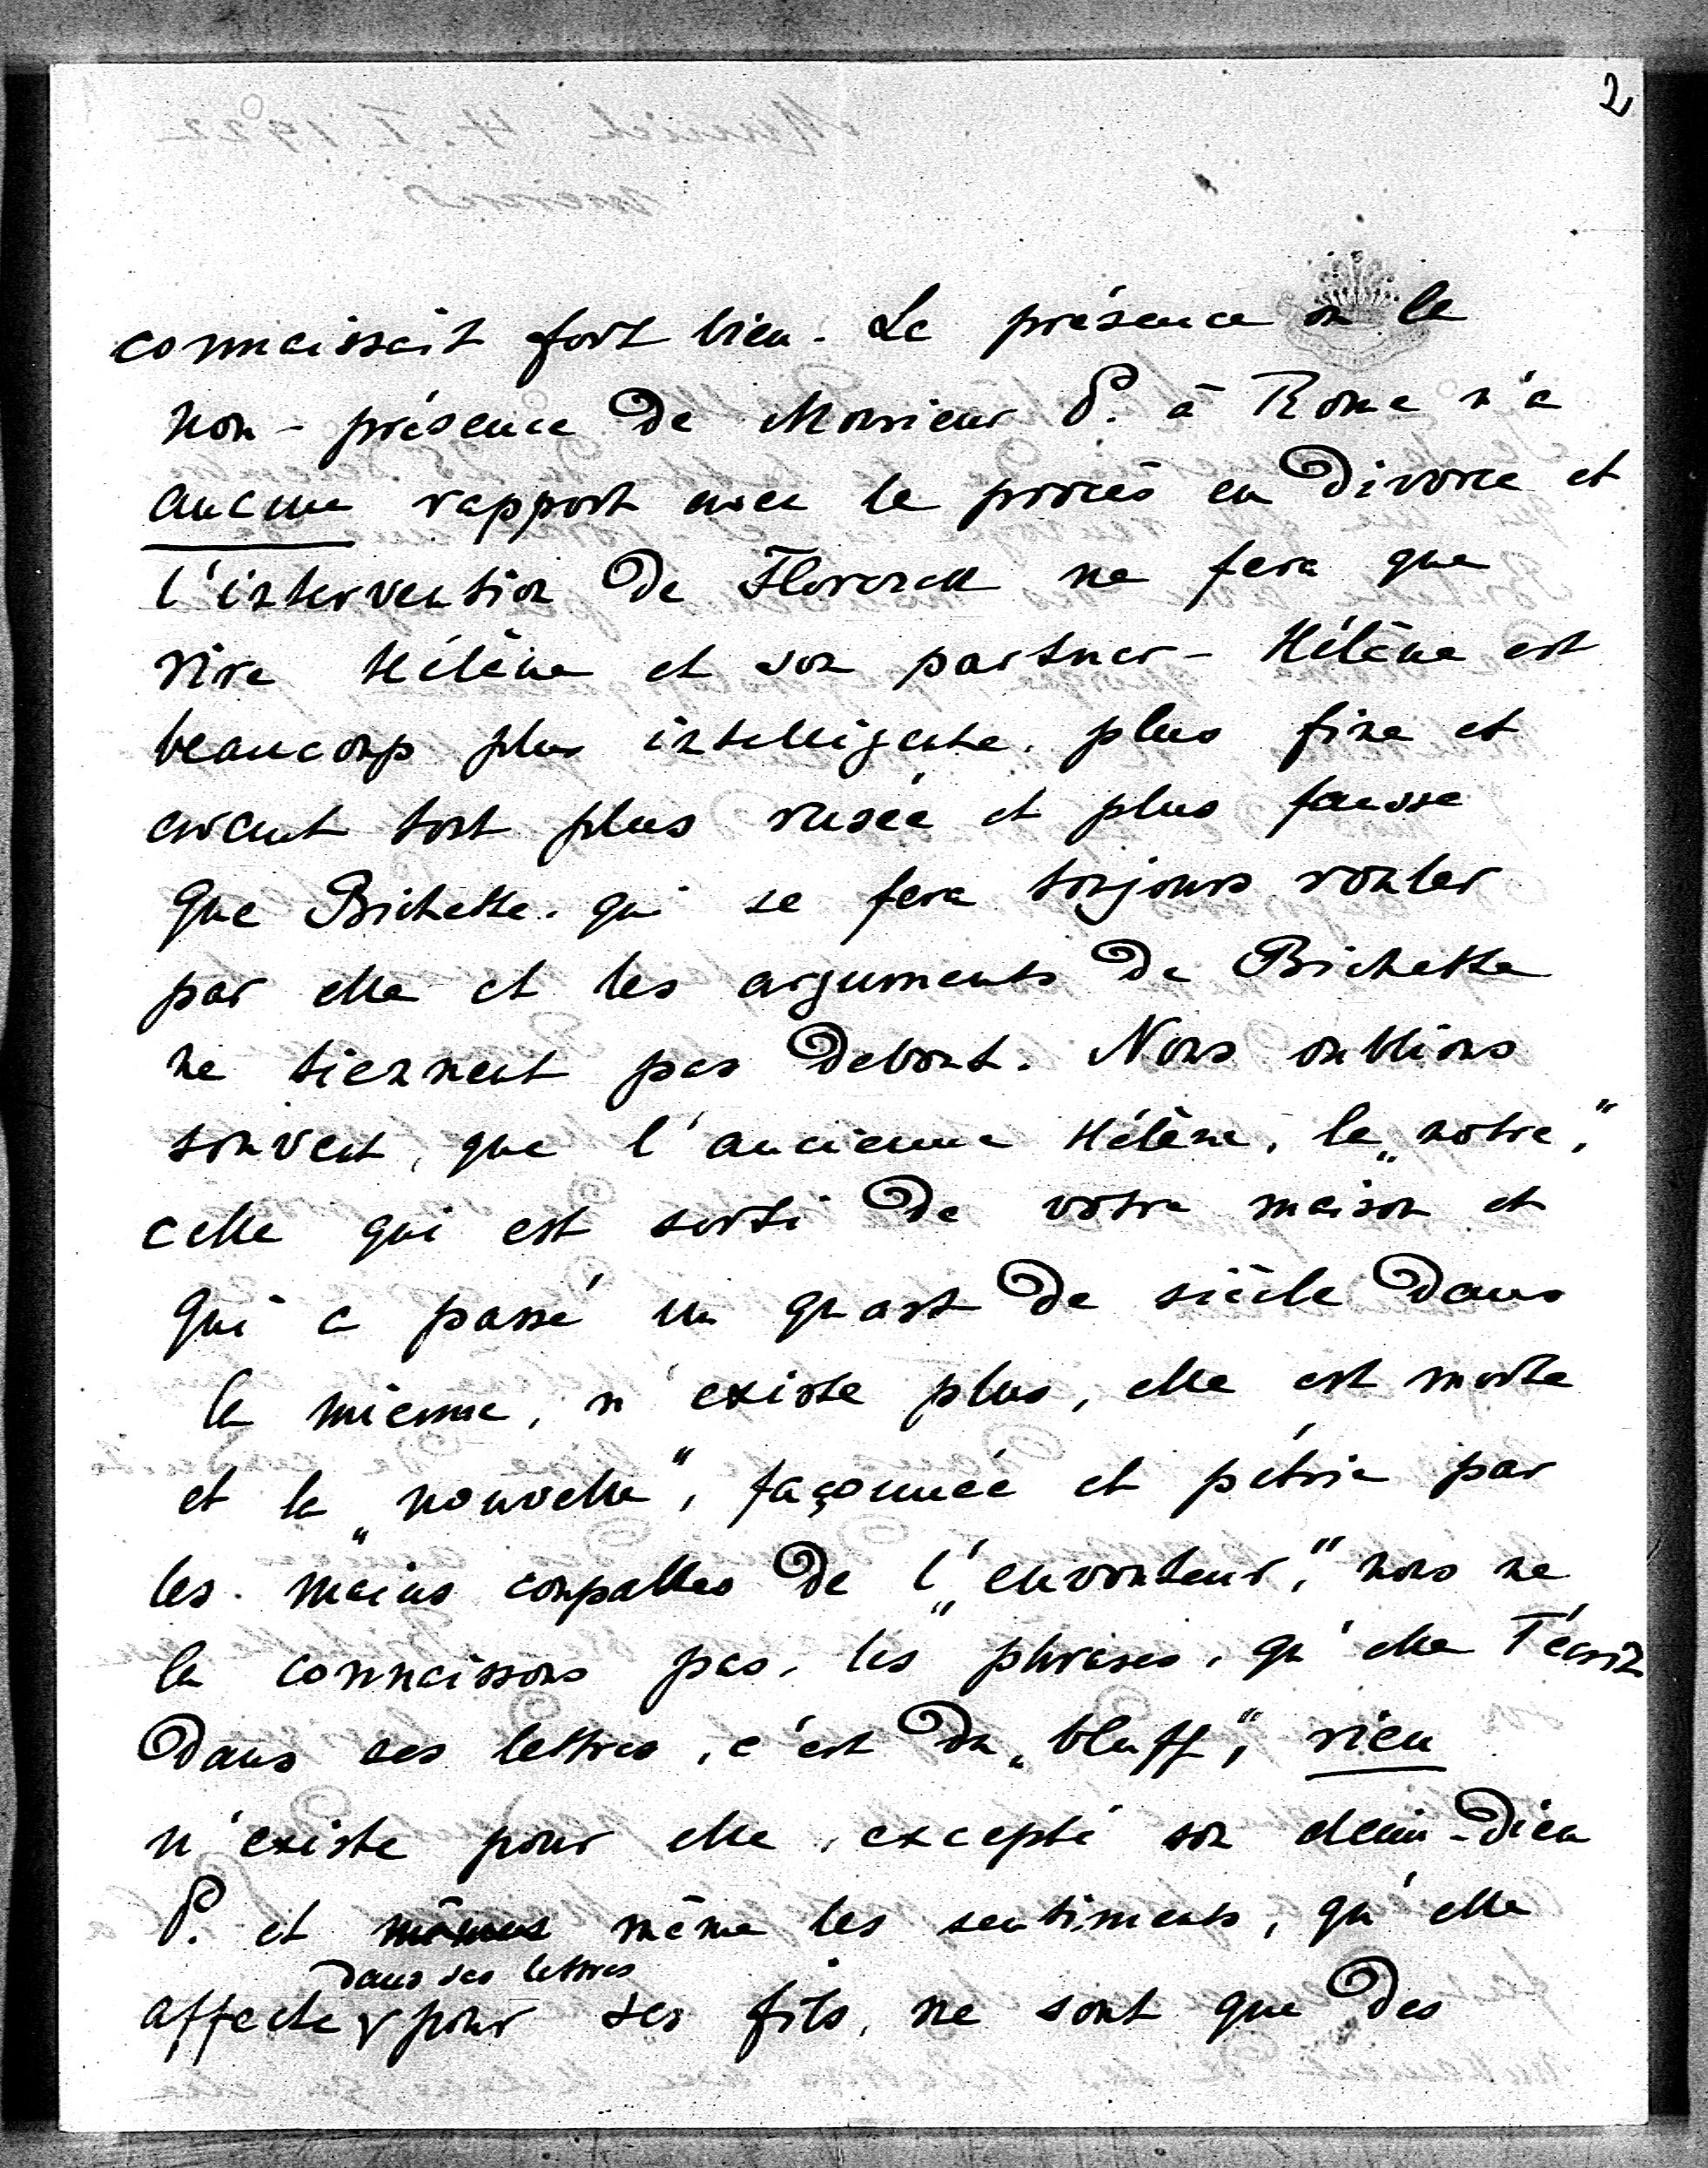 2
connaissait fort bien. La présence ou la
non-présence de Monsieur P. à Rome n'a
aucun rapport avec le procès en divorce et
l'intervention de ne fera que
rire Hélène et son partner - Hélène est
beaucoup plus intelligente, plus fine et
avant tout plus rusée et plus fausse
que Bichette, qui se fera toujours rouler
par elle et les arguments de Bichette
ne tiennent pas debout. Nous oublions
souvent, que l'ancienne Hélène, la „notre",
celle qui est sorti de votre maison et
qui a passé un quart de siècle dans
la mienne, n'existe plus, elle est morte
et la „nouvelle", façonnée et pétrie par
les mains coupables de l'„envouteur", nous ne
la connaissons pas, les phrases, qu'elle T'écrit
dans ses lettres, c'est du „bluff", rien
n'existe pour elle, excepté son demi-Dieu
P. et même les sentiments, qu'elle
dans ses lettres
affecte pour ses fils, ne sont que des